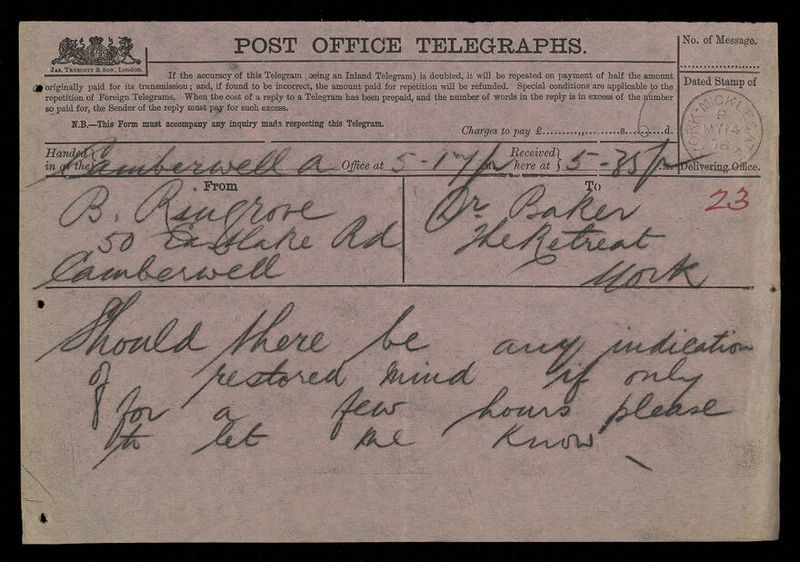 POST OFFICE TELEGRAPHS.
No. of Message.
JAS. TRUSCOTT & SON, London.
If the accuracy of this Telegram (being an Inland Telegram) is doubted, it will be repeated on payment of half the amount
originally paid for its transmission; and, if found to be incorrect, the amount paid for repetition will be refunded. Special conditions are applicable to the
repetition of Foreign Telegrams. When the cost of a reply to a Telegram has been prepaid, and the number of words in the reply is in excess of the number
so paid for, the Sender of the reply must pay for such excess.
Dated Stamp of
N.B.—This Form must accompany any inquiry made respecting this Telegram.
Charges to pay £ s. d.
YORK·MICKLEGATE
MY 14
78
Handed in at the Camberwell Office at 5-1 Received here at 5-35 Delivering Office.
From
B. Ringrove
50 Rd
Camberwell
To
Dr Baker
The Retreat
York
23
Should there be any indication
of restored mind if only
for a few hours please
to let me know